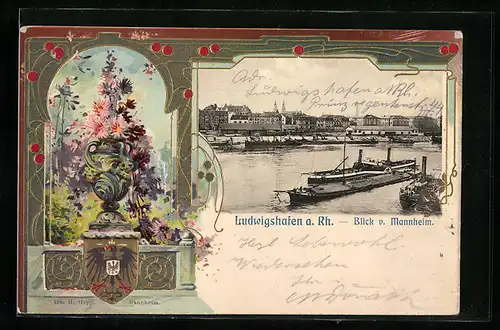 Adr.
Ludwigshafen a/Rh.
Prinzregentenstr.
Ludwigshafen a. Rh. — Blick v. Mannheim.
Herzl. Lebewohl.
Wiedersehen
Ihr
Mannheim.